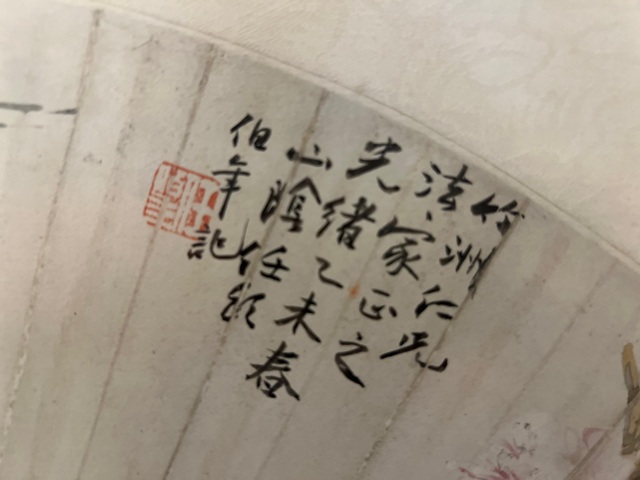 竹洲仁兄
法家正之
光緒乙未春
山陰任頤
伯年記